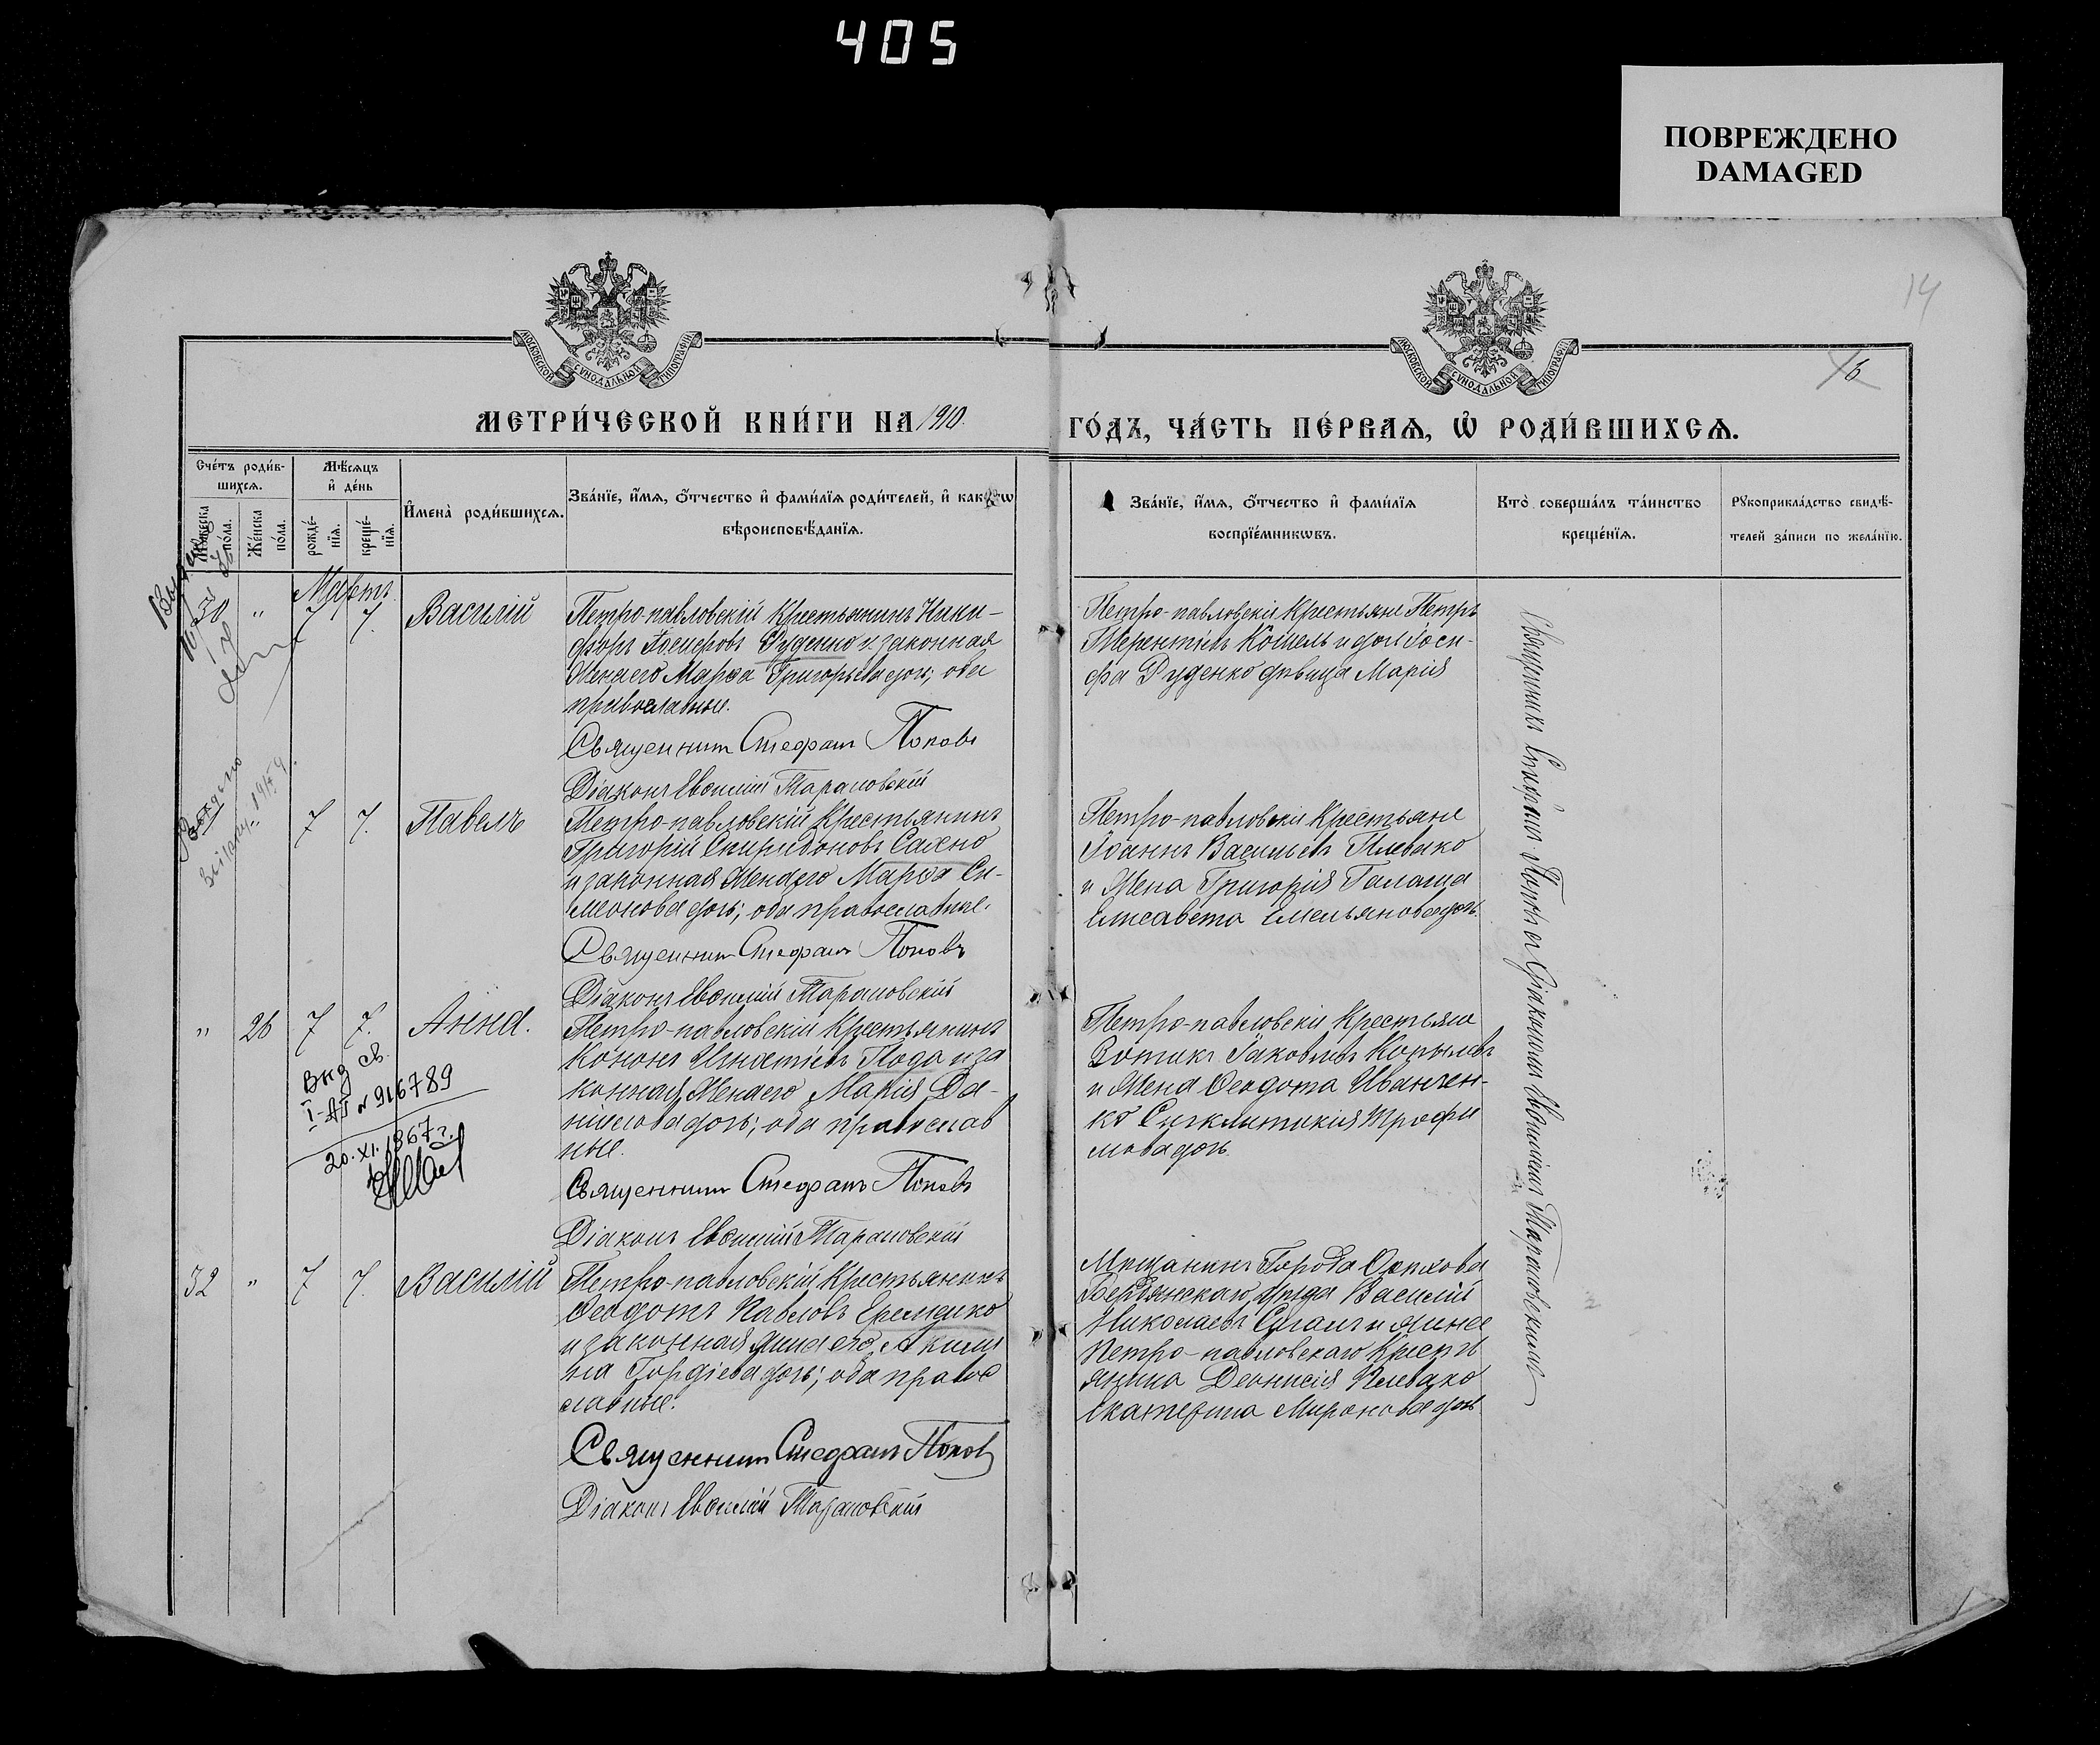 405
ПОВРЕЖДЕНО
DAMAGED
14
6
МОСКОВСКОЙ СѴНОДАЛЬНОЙ ТИПОГРАФІИ
МОСКОВСКОЙ СѴНОДАЛЬНОЙ ТИПОГРАФІИ
МЕТРИ́ЧЕСКОЙ КНИ́ГИ НА 1910.
ГО́ДЪ, ЧА́СТЬ ПЕ́РВАѦ, Ѡ҆ РОДИ́ВШИХСѦ.
Сче́тъ роди́в-
шихсѧ.
Мѣ́сѧцъ
и҆ де́нь
Мꙋ́жеска
по́ла.
Же́нска
по́ла.
рожде́-
нїѧ.
креще́-
нїѧ.
И҆мена̀ роди́вшихсѧ.
Зва́нїе, и҆́мѧ, ѻ҆́тчество и҆ фами́лїѧ роди́телей, и҆ како́гѡ
вѣроисповѣ́данїѧ.
Зва́нїе, и҆́мѧ, ѻ҆́тчество и҆ фами́лїѧ
воспрїе́мникѡвъ.
Кто̀ соверша́лъ та́инство
креще́нїѧ.
Рꙋкоприкла́дство свидѣ́-
телей за́писи по жела́нїю.
Мартъ
30 " 7 7. Василій
Петро-павловскій Крестьянинъ Ники-
форъ Іосифовъ Руденко и законная
Жена его Марѳа Григорьева дочь; оба
православные.
Священникъ Стефанъ Поповъ
Діаконъ Евѳимій Тарановскій
Петро-павловскіе Крестьяне Петръ
Терентіевъ Кошель и дочь Іоси-
фа Руденко дѣвица Марія
7 7. Павелъ
Петро-павловскій Крестьянинъ
Григорій Спиридоновъ Сахно
и законная Жена его Марѳа Си-
меонова дочь; оба православные.
Священникъ Стефанъ Поповъ
Діаконъ Евѳимій Тарановскій
Петро-павловскіе Крестьяне
Іоаннъ Васильевъ Плевако
и Жена Григорія Галаша
Елисавета Емельянова дочь.
" 26 7 7. Анна.
Петро-павловскій Крестьянинъ
Кононъ Игнатіевъ Пода и за
конная Жена его Марія Да-
ніилова дочь; оба православ
ные.
Священникъ Стефанъ Поповъ
Діаконъ Евѳимій Тарановскій
Петро-павловскіе Крестьяне
Зотикъ Іаковлевъ Копыловъ
и Жена Ѳеодота Иванчен-
ко Сигклитикія Трофи
мова дочь.
Выд св.
I-АП № 916789
20.XI.1967г.
32 " 7 7. Василій
Петро-павловскій Крестьянинъ
Ѳеодотъ Павловъ Еремѣнко
и законная жена его Акили
на Гордіева дочь; оба право
славные.
Священникъ Стефанъ Поповъ
Діаконъ Евѳимій Тарановскій
Мѣщанинъ Города Орѣхова
Бердянскаго уѣзда Василій
Николаевъ и жена
Петро-павловскаго Кресть
янина Діонисія Плевако
Екатерина Миронова дочь
Священникъ Стефанъ Поповъ съ Діакономъ Евѳиміемъ Тарановскимъ